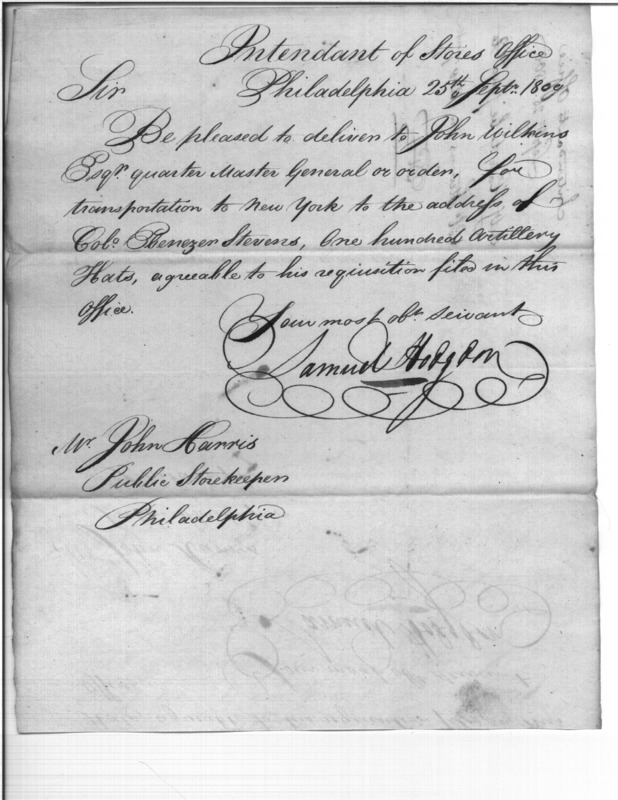 Intendant of Stores Office
Philadelphia 25th Septr. 1800
Sir
Be pleased to deliver to John Wilkins
Esqr. quarter Master General or order, for
transportation to New York to the address of
Colo. Ebenezer Stevens, One hundred Artillery
Hats, agreeable to his requisition filed in this
Office.
Your most obt. servant
Samuel Hodgdon
Mr. John Harris
Public Storekeeper
Philadelphia